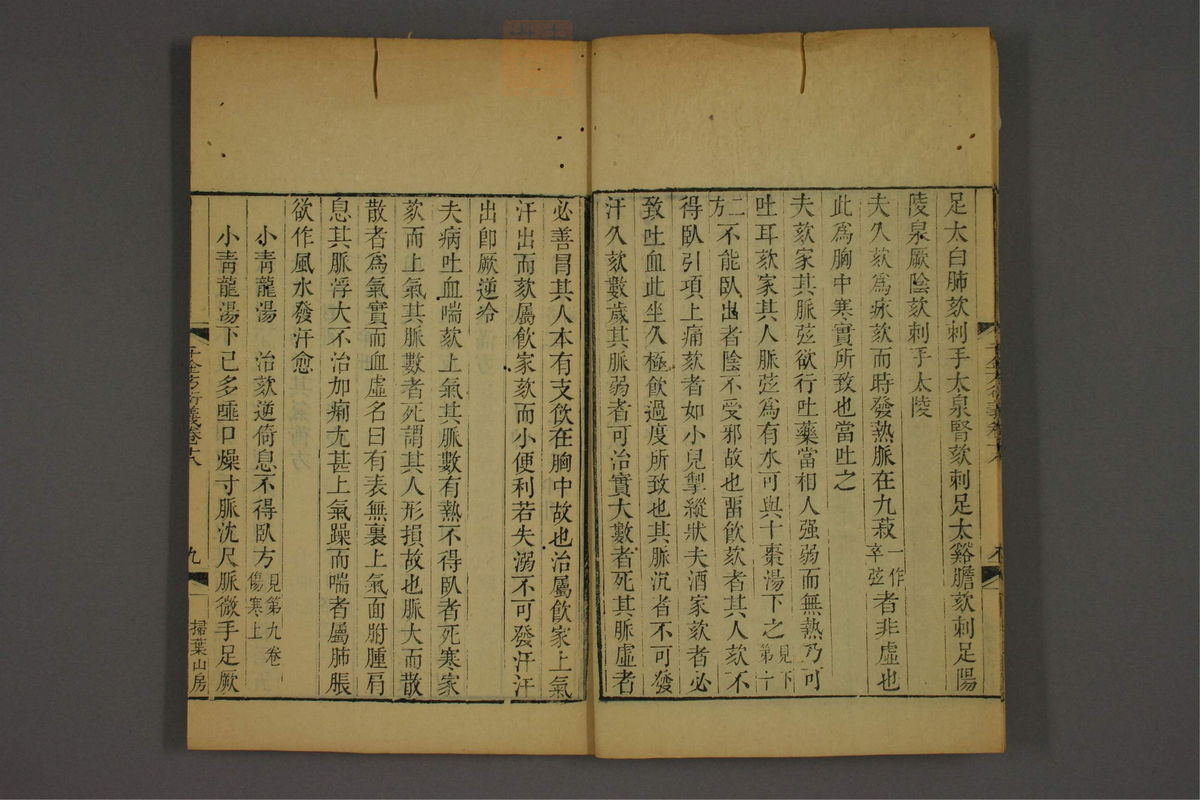 足太白肺欬刺手太泉腎欬刺足太谿膽欬刺足陽
陵泉厥陰欬刺手太陵
夫久欬爲㽷欬而時發熱脈在九菽一作卒弦者非虛也
此爲胸中寒實所致也當吐之
夫欬家其脈弦欲行吐藥當相人强弱而無熱乃可
吐耳欬家其人脈弦爲有水可與十棗湯下之見下第十
二方不能臥出者陰不受邪故也畱飮欬者其人欬不
得臥引項上痛欬者如小兒掣縱狀夫酒家欬者必
致吐血此坐久極飮過度所致也其脈沉者不可發
汗久欬數歲其脈弱者可治實大數者死其脈虛者
必善冒其人本有支飮在胸中故也治屬飮家上氣
汗出而欬屬飮家欬而小便利若失溺不可發汗汗
出卽厥逆冷
夫病吐血喘欬上氣其脈數有熱不得臥者死寒家
欬而上氣其脈數者死謂其人形損故也脈大而散
散者爲氣實而血虛名曰有表無裏上氣面胕腫肩
息其脈浮大不治加痢尤甚上氣躁而喘者屬肺脹
欲作風水發汗愈
小靑龍湯 治欬逆倚息不得臥方見第九卷傷寒上
小靑龍湯下已多唾口燥寸脈沈尺脈微手足厥
千金方衍義卷十八
九
掃葉山房